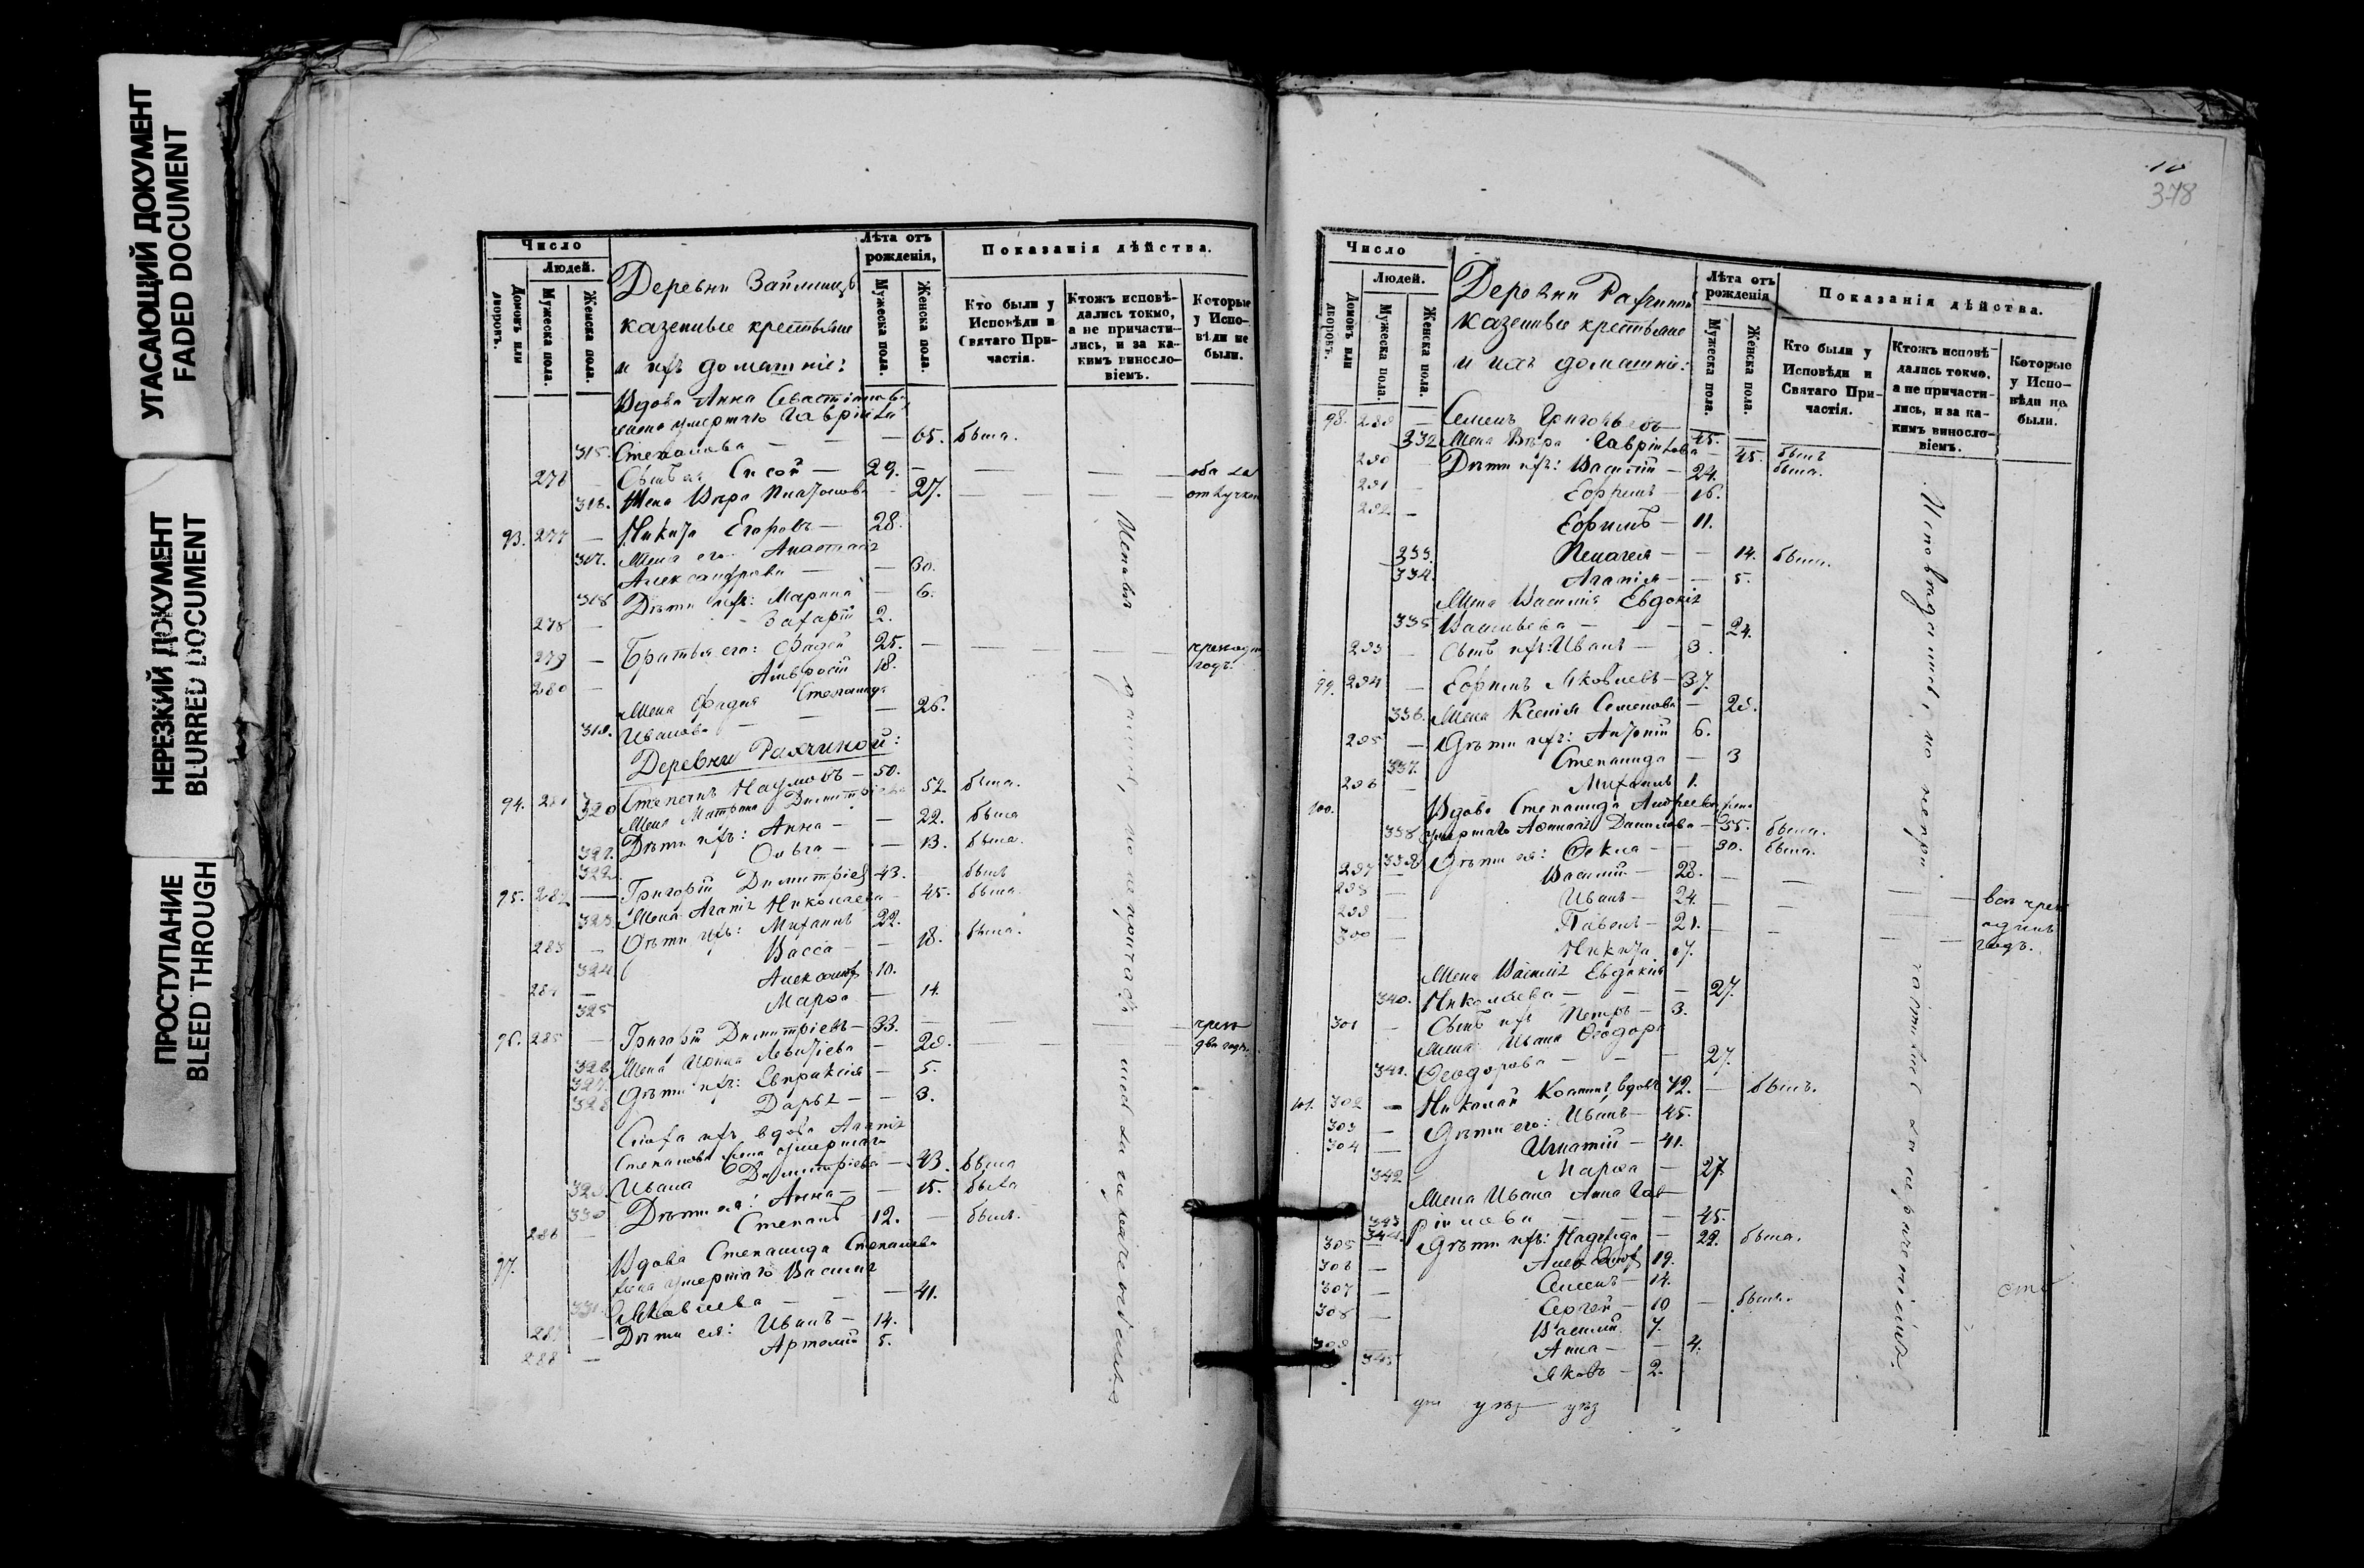 УГАСАЮЩИЙ ДОКУМЕНТ
FADED DOCUMENT
НЕРЕЗКИЙ ДОКУМЕНТ
BLURRED DOCUMENT
ПРОСТУПАНИЕ
BLEED THROUGH
Число
Людей.
Домовъ или дворовъ.
Мужеска пола.
Женска пола.
Деревни Займищъ
казенные крестьяне
и ихъ домашніе:
Лѣта отъ рожденія,
Мужеска пола.
Женска пола.
Показанія дѣйства.
Кто были у Исповѣди и Святаго Причастія.
Ктожъ исповѣдались токмо, а не причастились, и за какимъ винословіемъ.
Которые у Исповѣди не были.
Вдова Анна Севастіанова
жена умершаго Гавріила
315. Степанова — — — 65. была.
276 — Сынъ ея Сисой — 29. —
316. Жена Вѣра Платонова — 27.
93. 277 — Никита Егоровъ — 28.
317. Жена его Анастасія
Александрова — — 30.
318 Дѣти ихъ: Марина — 6.
278 — Захарій 2.
279 — Братья его: Фадей 25. —
280 — Амвросій 18.
Жена Фадея Степанида
319. Иванова — — — 26.
Деревни Рахчиной:
94. 281 Степанъ Наумовъ — 50.
320 Жена Матрона Димитріева 52. была.
321. Дѣти ихъ: Анна — — 22. была
322 Ольга — — 13. была.
95. 282 — Григорій Димитріевъ 43. былъ
323. Жена Агапія Николаева — 45. была.
283 — Дѣти ихъ: Михаилъ 22.
324 Васса — — 18. была.
284 — Александръ 10.
325 Марѳа — 14.
96. 285 — Григорій Димитріевъ — 33. — чрезъ
326 Жена Ирина — 29. — два года.
327. Дѣти ихъ: Евпраксія — 5.
328 Дарья — — 3.
Сноха ихъ вдова Агапія
Степанова жена умершаго
329. Ивана Димитріева — 43. была
330 Дѣти ея: Анна — — 15. была
286 — Степанъ 12. — былъ.
97. Вдова Степанида Степанова
жена умершаго Василія
331. Яковлева — — — 41.
287 — Дѣти ея: Иванъ — 14.
288 — Артемій 5.
10
378
Число
Людей.
Домовъ или дворовъ.
Мужеска пола.
Женска пола.
казенные крестьяне
и ихъ домашніе:
Лѣта отъ рожденія
Мужеска пола.
Женска пола.
Показанія дѣйства.
Кто были у Исповѣди и Святаго Причастія.
Ктожъ исповѣдались токмо, а не причастились, и за какимъ винословіемъ.
Которые у Исповѣди не были.
98. 289 — Семенъ Григорьевъ 45. былъ
332 Жена Вѣра Гавріилова — 45. была.
290 — Дѣти ихъ: Василій — 24.
291 — Ефремъ — 16.
292 — Ефимъ — 11.
333 Пелагея — — 14. была.
334. Агапія — — 5.
Жена Василія Евдокія
335 Васильева — — — 24.
293 — Сынъ ихъ: Иванъ — 3.
99. 294 — Ефимъ Яковлевъ — 37.
336. Жена Ксенія Семенова — 28.
295 — Дѣти ихъ: Антоній 6.
337. Степанида — 3
296 — Михаилъ 1.
100. Вдова Степанида Андреева жена
338 умершаго Данилова — 55. была.
339 Дѣти ея: Ѳекла — — 30. была.
297 — Василій — 28. — — всѣ чрезъ
298 — Иванъ — 24. — — одинъ
299 — Павелъ — 21. — — годъ.
300 — Никита 17.
Жена Василія Евдокія
340. Николаева — — — 27.
301 — Сынъ ихъ Петръ — 3.
Жена Ивана Ѳеодора
341. Ѳеодорова — — — 27.
101. 302 — Николай вдовъ 72. — былъ.
303 — Дѣти его: Иванъ — 45.
304 — Игнатій — 41.
342 Марѳа — 27.
Жена Ивана Анна Гав-
343 ріилова — — — 45.
344 Дѣти ихъ: Надежда — 22. была.
305 — Александръ 19.
306 — Семенъ — 14.
307 — Сергей — 10 — былъ.
308 — Василій 7.
345 Анна — — 4.
309 Яковъ — 2.